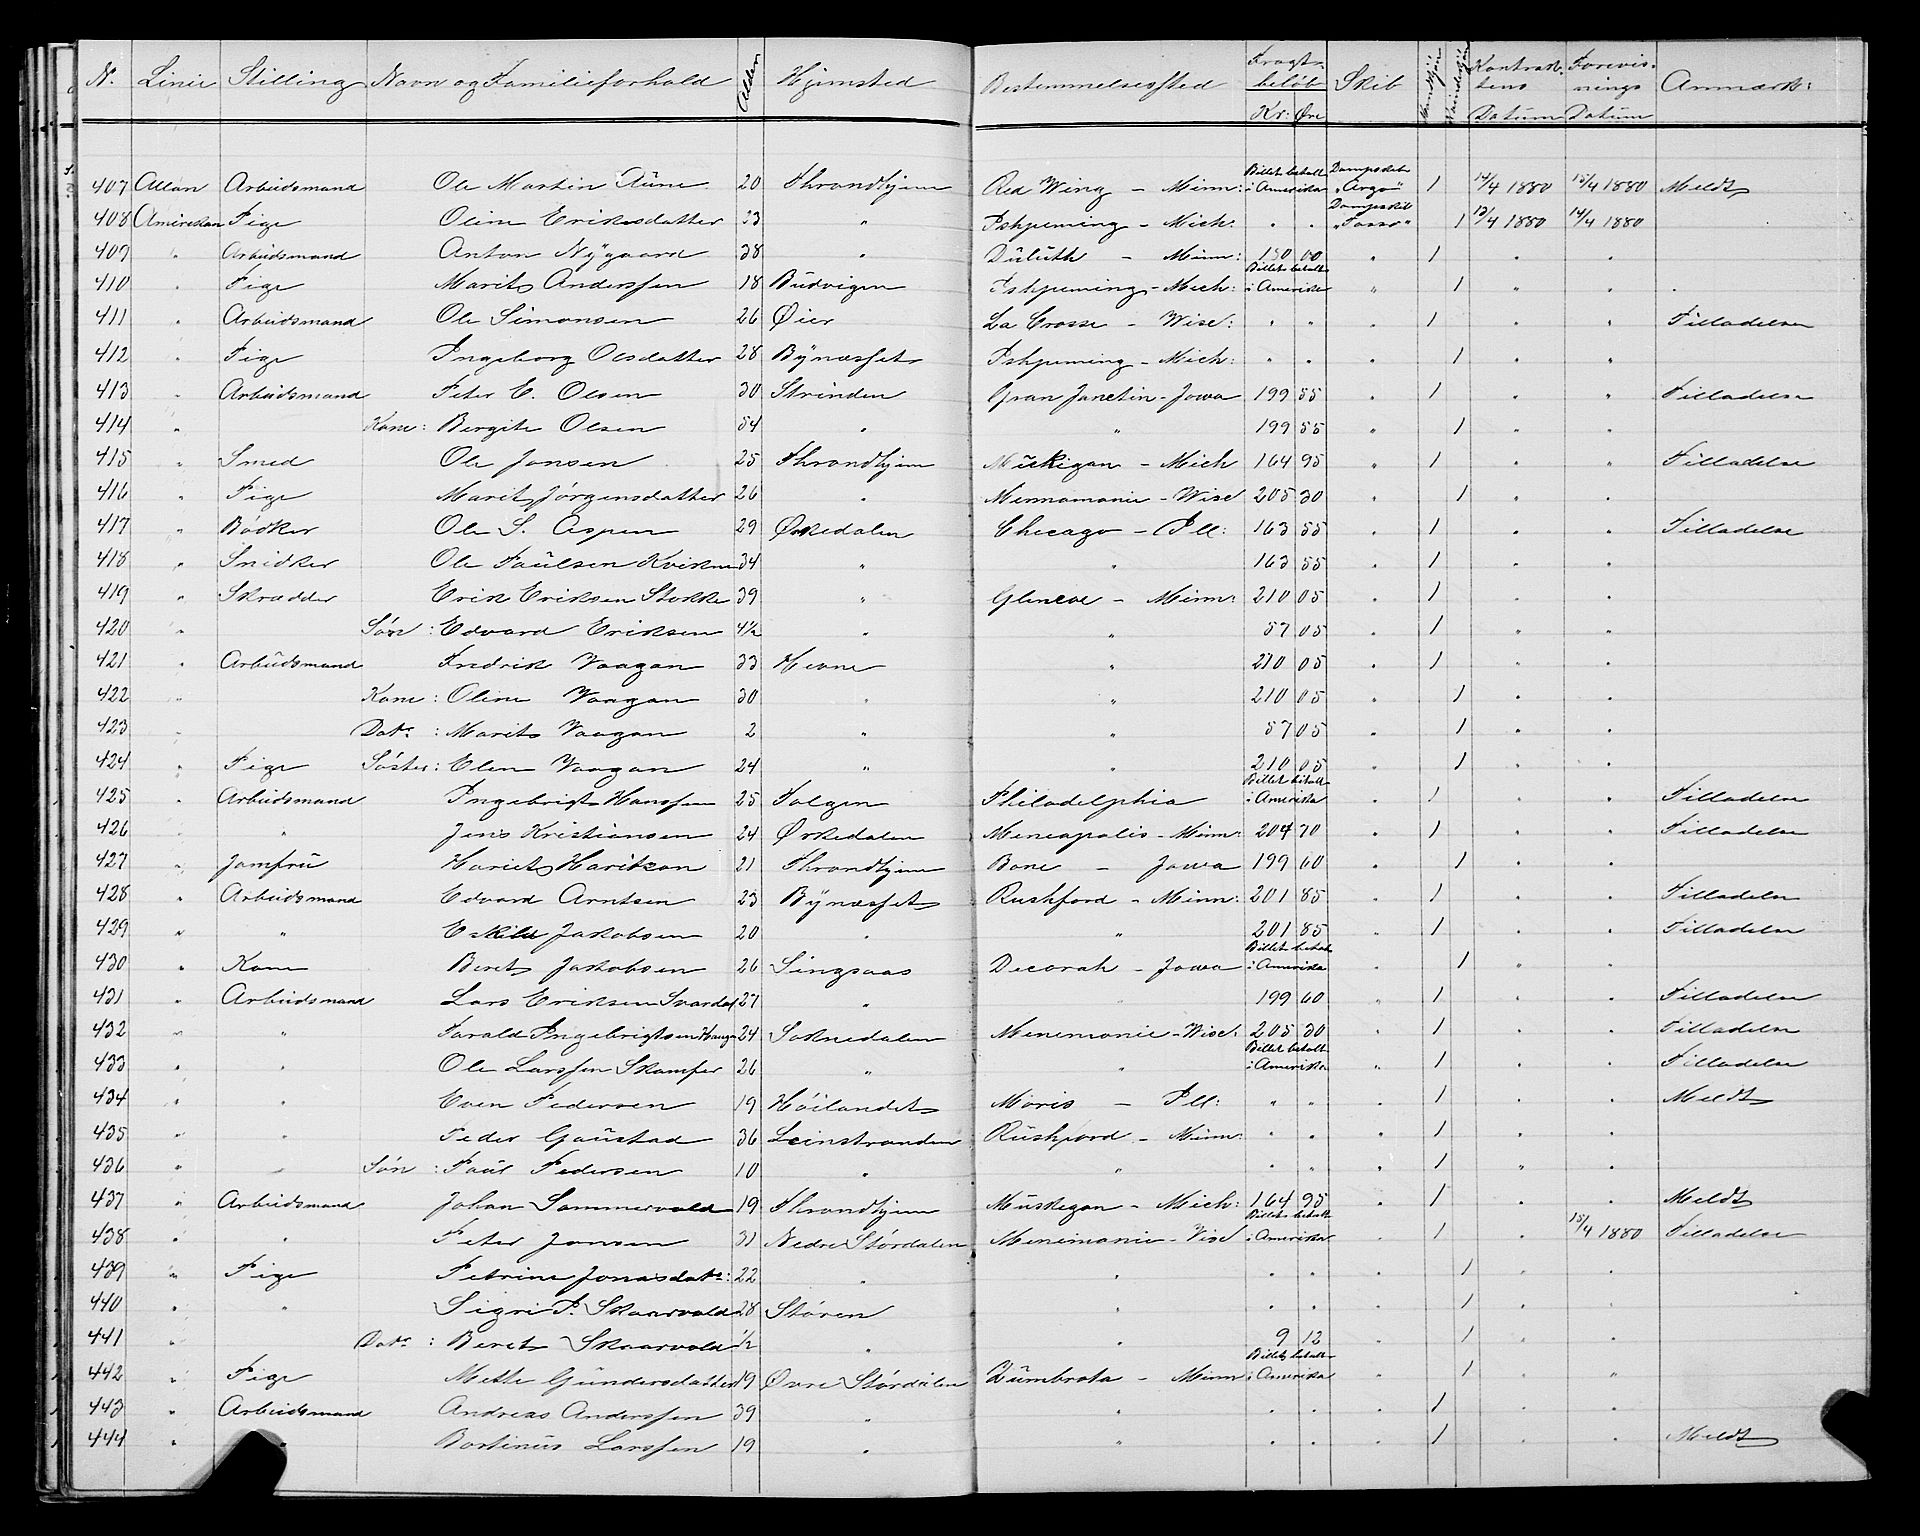 N. Linie Stilling Navn og Familieforhold Alder Hjemsted Bestemmelsessted Fragtbeløb Kr: Øre Skib Mandkjøn Kvindekjøn Kontraktens Datum Forevisnings Datum Anmærk:
407 Allan Arbeidsmand Ole Martin Aune 20 Throndhjem Red Wing - Minn: Billet betalt i Amerika Dampskib "Argo" 1 14/4 1880 15/4 1880 Meldt
408 Amerikan Pige Oline Eriksdatter 23 " Ishpeming - Mich: " " Dampskib "Tasso" 1 13/4 1880 14/4 1880
409 " Arbeidsmand Anton Nygaard 38 " Duluth - Minn: 150 00 " 1 " "
410 " Pige Marit Anderssen 18 Budvigen Ishpeming - Mich: Billet betalt i Amerika " 1 " "
411 " Arbeidsmand Ole Simonsen 26 Øier La Crosse - Wisc: " " " 1 " " Tilladelse
412 " Pige Ingeborg Olsdatter 28 Bynæsset Ishpeming - Mich: " " " 1 " "
413 " Arbeidsmand Peter E. Olsen 30 Strinden Gran Janctin - Jowa 199 55 " 1 " " Tilladelse
414 " Kone: Bergite Olsen 54 " " 199 55 " 1 " "
415 " Smed Ole Jonsen 25 Throndhjem Muskigan - Mich 164 95 " 1 " " Tilladelse
416 " Pige Marit Jörgensdatter 26 " Mennamanie - Wisc 205 30 " 1 " "
417 " Bödker Ole S. Aspen 29 Ørkedalen Chicago - Ill: 163 55 " 1 " " Tilladelse
418 " Snidker Ole Paulsen Kvikne 34 " " 163 55 " 1 " "
419 " Skrædder Erik Eriksen Stokke 39 " Glencoe - Minn: 210 05 " 1 " "
420 " Sön: Edvard Eriksen 4½ " " 57 05 " 1 " "
421 " Arbeidsmand Fredrik Vaagan 33 Hevne " 210 05 " 1 " "
422 " Kone: Oline Vaagan 30 " " 210 05 " 1 " "
423 " Datr: Marit Vaagan 2 " " 57 05 " 1 " "
424 " Pige Söster: Elen Vaagan 24 " " 210 05 " 1 " "
425 " Arbeidsmand Ingebrigt Hanssen 25 Tolgen Philadelphia Billet betalt i Amerika " 1 " " Tilladelse
426 " " Jens Kristiansen 24 Ørkedalen Meneapolis - Minn: 204 70 " 1 " " Tilladelse
427 " Jomfru Hariet Haritzon 21 Throndhjem Bone - Jowa 199 60 " 1 " "
428 " Arbeidsmand Edvard Arntsen 23 Bynæsset Rushford - Minn: 201 85 " 1 " " Tilladelse
429 " " Eskild Jakobsen 20 " " 201 85 " 1 " " Tilladelse
430 " Kone Beret Jakobsen 26 Singsaas Decorah - Jowa Billet betalt i Amerika " 1 " "
431 " Arbeidsmand Lars Eriksen Svardal 27 " " 199 60 " 1 " " Tilladelse
432 " " Harald Ingebrigtsen Haugn 24 Soknedalen Menemonie - Wisc: 205 30 " 1 " " Tilladelse
433 " " Ole Larssen Skamfer 26 " " Billet betalt i Amerika " 1 " " Tilladelse
434 " " Even Pedersen 19 Höilandet Moris - Ill: " " " 1 " " Meldt
435 " " Peder Gaustad 36 Leinstranden Rushford - Minn: " " " 1 " "
436 " " Sön: Paul Pedersen 10 " " " " " 1 " "
437 " Arbeidsmand Johan Sommervold 19 Throndhjem Muskegan - Mich: 164 95 " 1 " " Meldt
438 " " Peter Jonsen 31 Nedre Stördalen Menimonie - Wisc Billet betalt i Amerika " 1 " 15/4 1880 Tilladelse
439 " Pige Petrine Jonasdatr: 22 " " " " " 1 " "
440 " " Sigri P. Skaarvold 28 Stören " " " " 1 " "
441 " Datr: Beret Skaarvold ½ " " 9 12 " 1 " "
442 " Pige Mette Gundersdatter 19 Øvre Stördalen Zumbrota - Minn Billet betalt i Amerika " 1 " "
443 " Arbeidsmand Andreas Anderssen 39 " " " " " 1 " "
444 " " Bortinus Larssen 19 " " " " " 1 " " Meldt